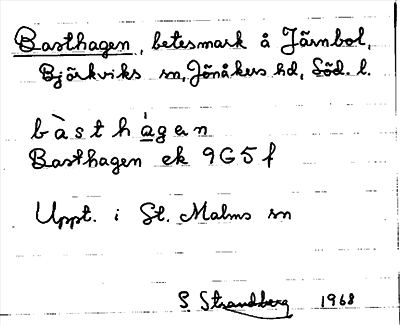 Basthagen, betesmark å Järnbol,
Björkviks sn, Jönåkers hd, Söd. l.
bàsthàgan
Basthagen ek 9G5f
Uppt. i St. Malms sn
S. Strandberg 1968